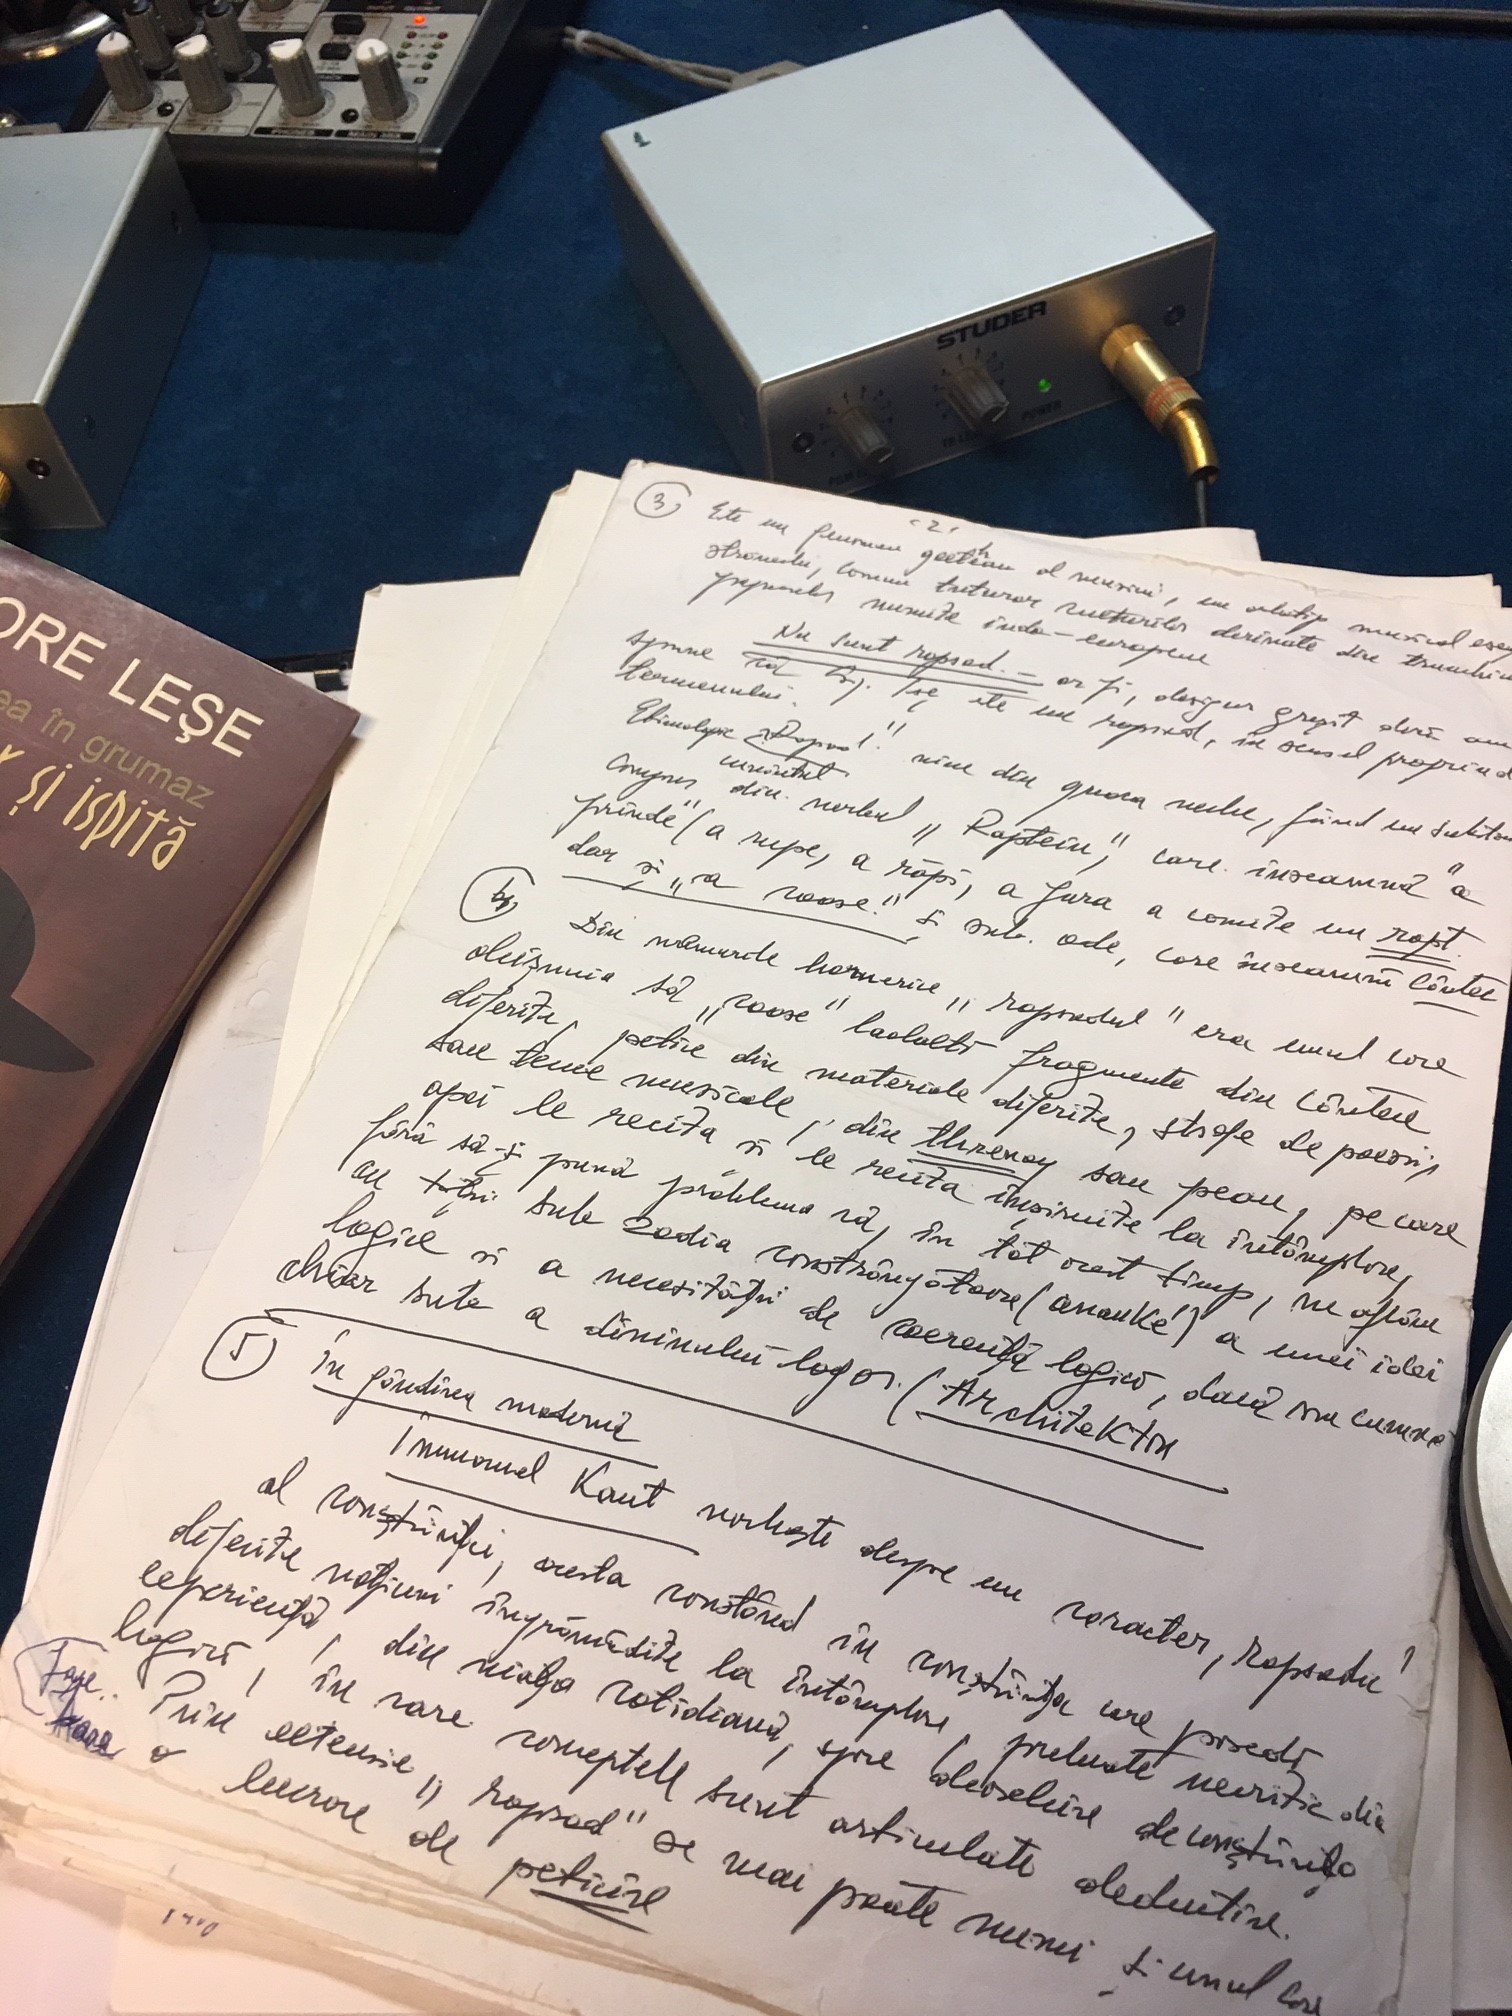 PHONES
MAIN MIX
STUDER
POWER
ORE LEȘE
ea în grumaz
și ispită
3
Este un fenomen al muzicii, un arhetip muzical
comun tuturor culturilor derivate din
popoarelor numite indo-europene
Nu sunt rapsod. – ar fi, desigur greșit dacă am
spune că Gr. Leșe este un rapsod, în sensul propriu al
termenului.
Etimologic "Rapsod" vine din greaca veche, fiind un
compus din verbul "Raptein", care înseamnă "a
prinde" (a rupe, a răpi, a fura a comite un rapt.
dar și "a coase." și sub. ode, care înseamnă cântec
4
Din vremurile homerice "rapsodul" era unul care
obișnuia să "coase" laolaltă fragmente din cântece
diferite, petice din materiale diferite, strofe de poezii,
sau teme muzicale, din threnoy sau pean, pe care
apoi le recita și le recita înșiruite la întâmplare,
fără să-și pună problema că, în tot acest timp, ne aflăm
cu toții sub zodia constrângătoare (ananké) a unei idei
logice și a necesității de coerență logică, dacă nu cumva
chiar sub a divinului logos. (Architekton
5
În gândirea modernă
Immanuel Kant vorbește despre un caracter, rapsodic"
al conștiinței, acesta constând în conștiința care posedă
diferite noțiuni îngrămădite la întâmplare, preluate necritic din
experiență, din viața cotidiană, spre deosebire de conștiința
logică, în care conceptele sunt articulate deductive.
Prin extensie, "rapsod" se mai poate numi și unul care
o lucrare de peticire